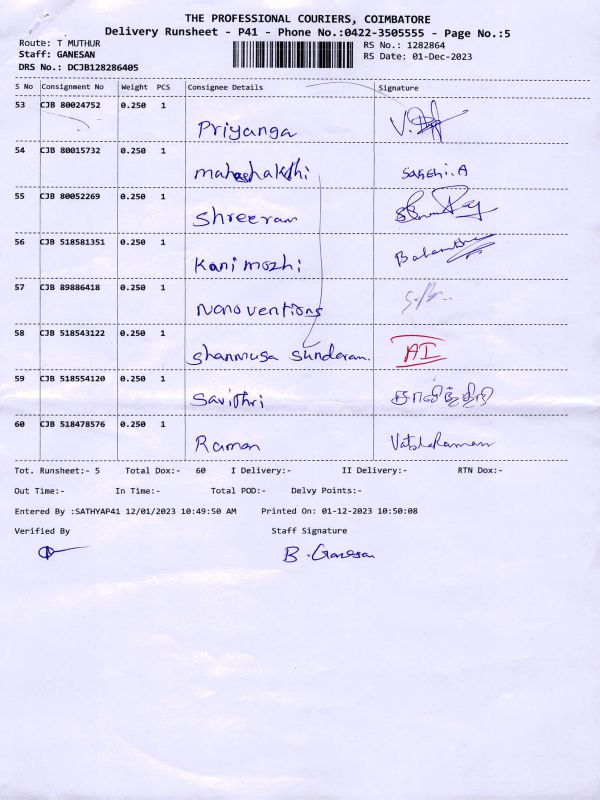 THE PROFESSIONAL COURIERS, COIMBATORE
Delivery Runsheet - P41 - Phone No.:0422-3505555 - Page No.:5
Route: T MUTHUR RS No.: 1282864
Staff: GANESAN RS Date: 01-Dec-2023
DRS No.: DCJB128286405
S No Consignment No Weight PCS Consignee Details Signature
53 CJB 80024752 0.250 1
Priyanga
54 CJB 80015732 0.250 1
Sakthi.A
55 CJB 80052269 0.250 1
Shreeram
56 CJB 518581351 0.250 1
Kanimozhi
57 CJB 89886418 0.250 1
Nanoventions
58 CJB 518543122 0.250 1
Shanmuga Sundaram. AI
59 CJB 518554120 0.250 1
Savithri சாவித்திரி
60 CJB 518478576 0.250 1
Raman
Tot. Runsheet:- 5 Total Dox:- 60 I Delivery:- II Delivery:- RTN Dox:-
Out Time:- In Time:- Total POD:- Delvy Points:-
Entered By :SATHYAP41 12/01/2023 10:49:50 AM Printed On: 01-12-2023 10:50:08
Verified By Staff Signature
B. Ganesan